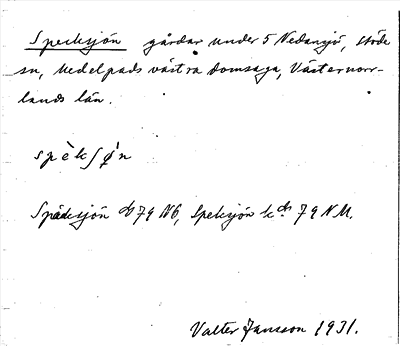 Specksjön gårdar under 5 Nedansjö, Stöde
sn, Medelpads västra domsaga, Västernorr-
lands län.
spèkʃø̀n
Späcksjön 79 N6, Speksjön 79 NM.
Valter Jansson 1931.